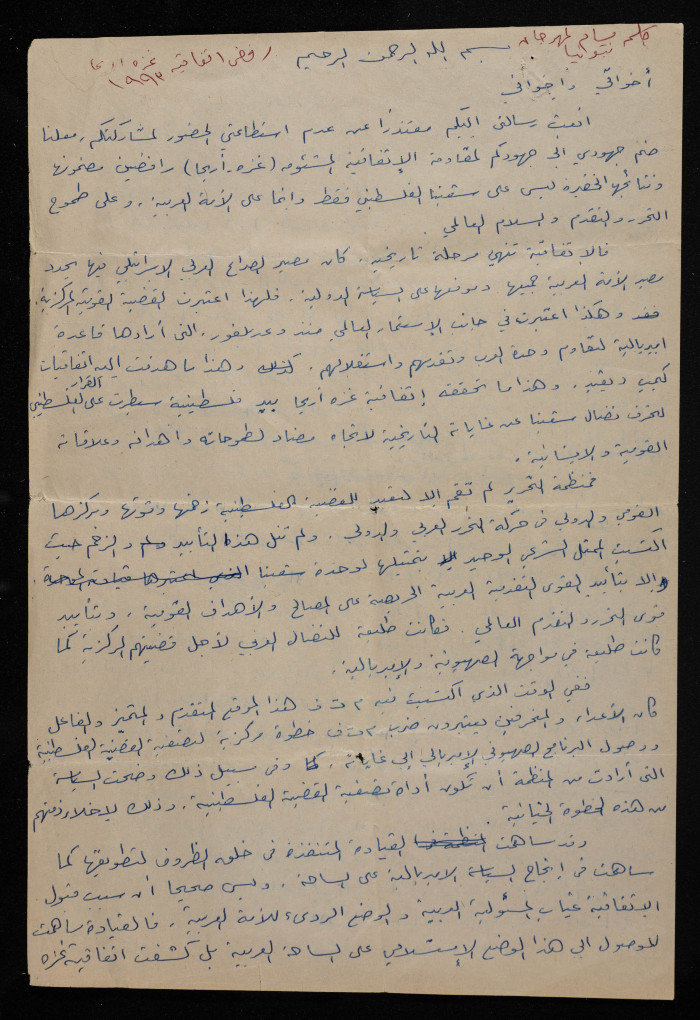 كلمة بسام لمهرجان
نيقوسيا
بسم الله الرحمن الرحيم
رفض اتفاقية غزه اريحا
١٩٩٣
أخواتي وإخواني
ابعث رسالتي اليكم معتذراً عن عدم استطاعتي الحضور لمشاركتكم، معلنا
ضم جهودي الى جهودكم لمقاومة الإتفاقية المشئومه (غزه-أريحا) رافضين مضمونها
ونتائجها الخطيرة ليس على شعبنا الفلسطيني فقط وانما على الأمة العربية. وعلى طموح
التحرر والتقدم والسلام العالمي.
فالاتفاقية تنهي مرحلة تاريخية. كان مصير الصراع العربي الاسرائيلي فيها يحدد
مصير الأمة العربية جميعها وموقعها على السياسة الدولية. فلهذا اعتبرت القضية القومية المركزية.
فقد وهكذا اعتبرت في جانب الإستعمار العالمي منذ وعد بلفور. التي أرادها قاعدة
امبريالية لتقاوم وحدة العرب وتقدمهم واستقلالهم. كذلك وهذا ما هدفت إليه اتفاقيات
كامب ديفيد. وهذا ما تحققه إتفاقية غزه أريحا بيد فلسطينية سيطرت على القرار الفلسطيني
لتحرف نضال شعبنا عن غاياته التاريخية لاتجاه مضاد لطموحاته وأهدافه وعلاقاته
القومية والإنسانية.
فمنظمة التحرير لم تقم إلا لتعيد للقضية الفلسطينية زخمها وقوتها ومركزها
القومي والدولي في حركة التحرر العربي والدولي. ولم تنل هذا التأييد والزخم حيث
اكتسبت الممثل الشرعي الوحيد إلا بتمثيلها لوحدة شعبنا
وإلا بتأييد القوى التقدمية العربية الحريصة على المصالح والأهداف القومية. وبتأييد
قوى التحرر والتقدم العالمي. فكانت طليعة للنضال العربي لأجل قضيتهم المركزية كما
كانت طليعة في مواجهة الصهيونية والإمبريالية.
ففي الوقت الذي اكتسبت فيه م ت ف هذا الموقع المتقدم والمتميز والفاعل
كان الأعداء والمنحرفين يعتبرون ضرب م ت ف خطوة مركزية لتصفية القضية الفلسطينية
ووصول البرنامج الصهيوني الإمبريالي إلى غاياته. كما وفي سبيل ذلك وضحت السياسة
التي أرادت من المنظمة أن تكون أداة تصفية القضية الفلسطينية. وذلك
من هذه الخطوة الخيانية.
وقد ساهمت القيادة المتنفذة في خلق الظروف لتطويقها كما
ساهمت في إنجاح السياسة الامبريالية على الساحة. وليس صحيحا أن سبب قبول
الاتفاقية غياب المسؤولية العربية والوضع الردىء للأمة العربية. فالقيادة ساهمت
للوصول الى هذا الوضع الإستسلامي على الساحة العربية بل كشفت اتفاقية غزه